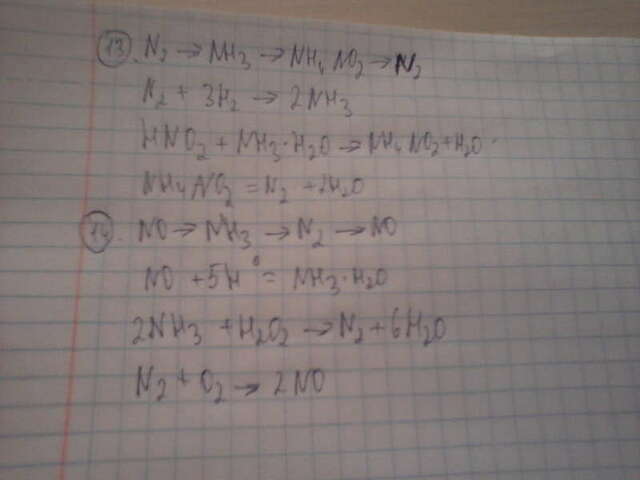 13. N₂ → NH₃ → NH₄NO₂ → N₂
N₂ + 3H₂ → 2NH₃
HNO₂ + NH₃·H₂O → NH₄NO₂ + H₂O
NH₄NO₂ = N₂ + 2H₂O
14. NO → NH₃ → N₂ → NO
NO + 5H⁰ = NH₃·H₂O
2NH₃ + H₂O₂ → N₂ + 6H₂O
N₂ + O₂ → 2NO